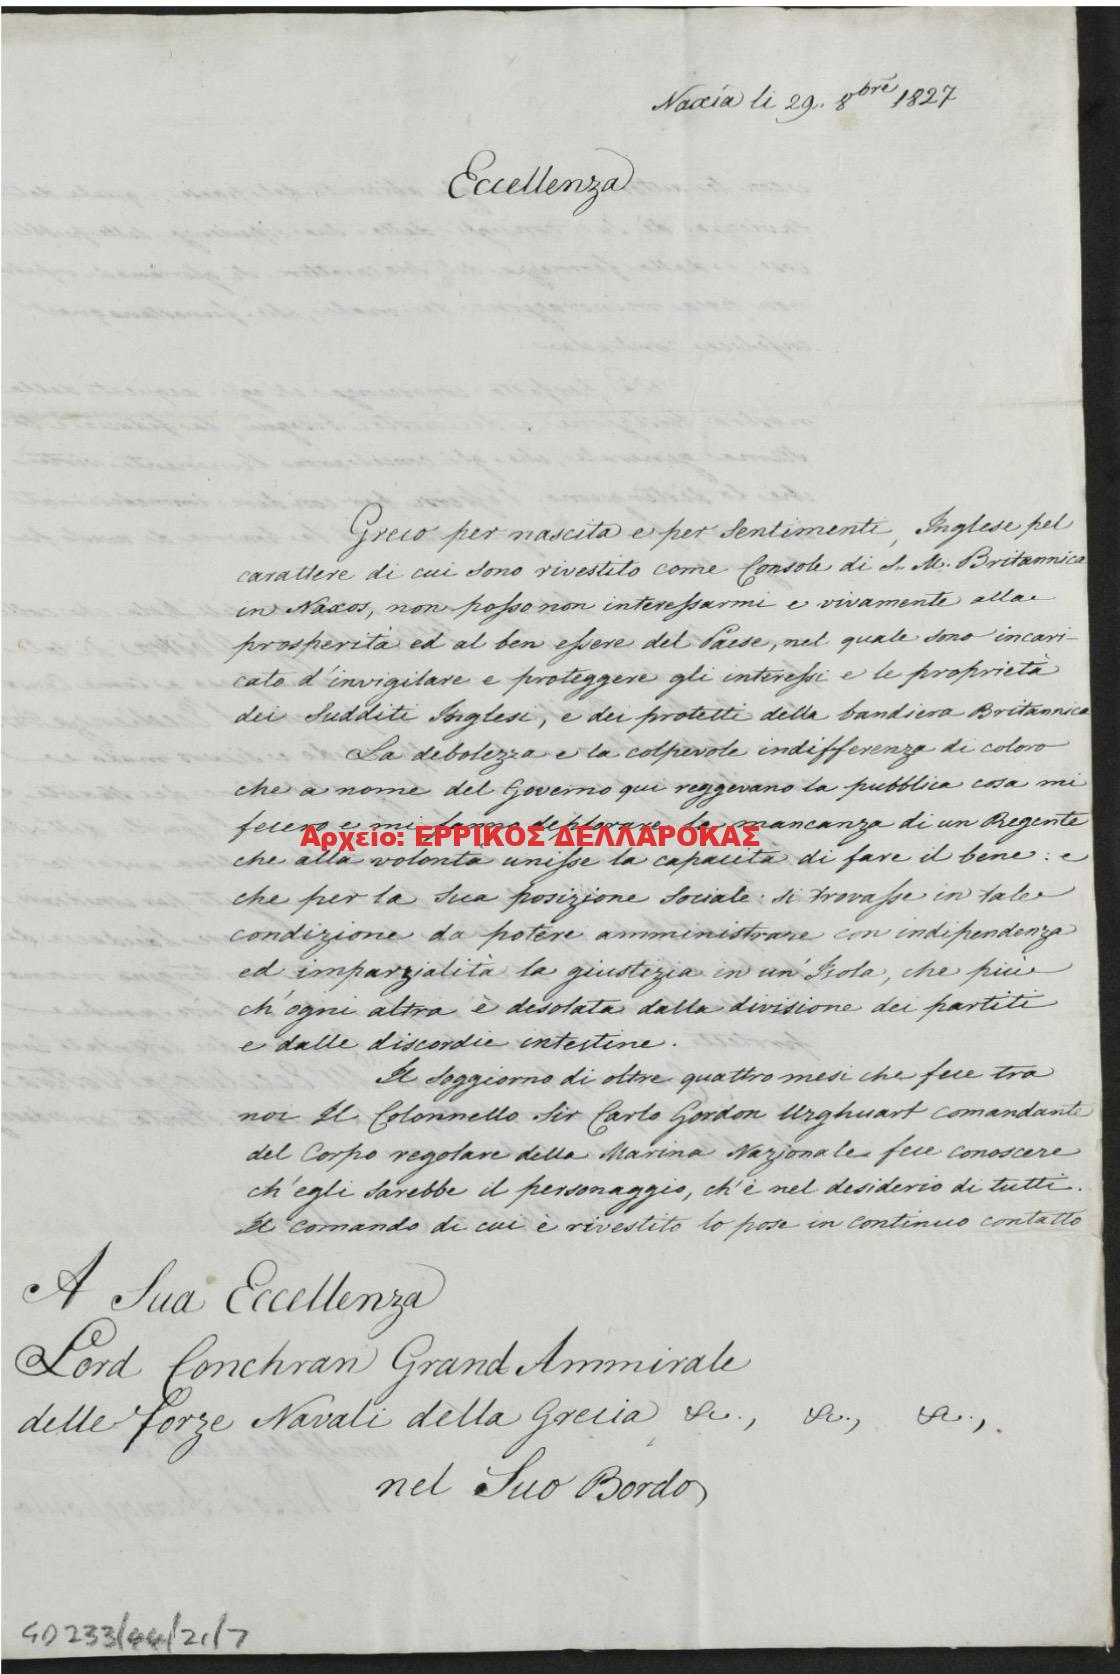 Naxia li 29. 8bre 1827
Eccellenza
Greco per nascita e per sentimenti, Inglese pel
carattere di cui sono rivestito come Console di S. M. Britannica
in Naxos, non posso non interessarmi e vivamente alla
prosperità ed al ben essere del Paese, nel quale sono incari-
cato d'invigilare e proteggere gli interessi e le proprietà
dei Sudditi Inglesi, e dei protetti della bandiera Britannica
La debolezza e la colpevole indifferenza di coloro
che a nome del Governo qui reggevano la pubblica cosa mi
fecero e mi fanno deplorare la mancanza di un Regente
Αρχείο: ΕΡΡΙΚΟΣ ΔΕΛΛΑΡΟΚΑΣ
che alla volontà unisse la capacità di fare il bene: e
che per la sua posizione sociale si trovasse in tale
condizione da potere amministrare con indipendenza
ed imparzialità la giustizia in un'Isola, che più
ch'ogni altra è desolata dalla divisione dei partiti
e dalle discordie intestine.
Il soggiorno di oltre quattro mesi che fece tra
noi Il Colonnello Sir Carlo Gordon Urghuart comandante
del Corpo regolare della Marina Nazionale fece conoscere
ch'egli sarebbe il personaggio, ch'è nel desiderio di tutti.
Il comando di cui è rivestito lo pose in continuo contatto
A Sua Eccellenza
Lord Conchran Grand Ammirale
delle Forze Navali della Grecia &c., &c., &c.,
nel Suo Bordo
GD233/44/21/7